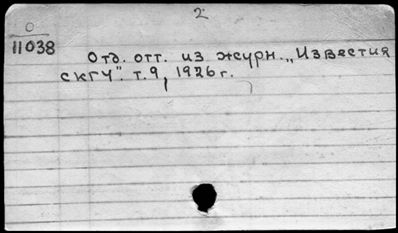 2
0
11038
Отд. отт. из журн. „Известия
СКГУ". т.9, 1926 г.